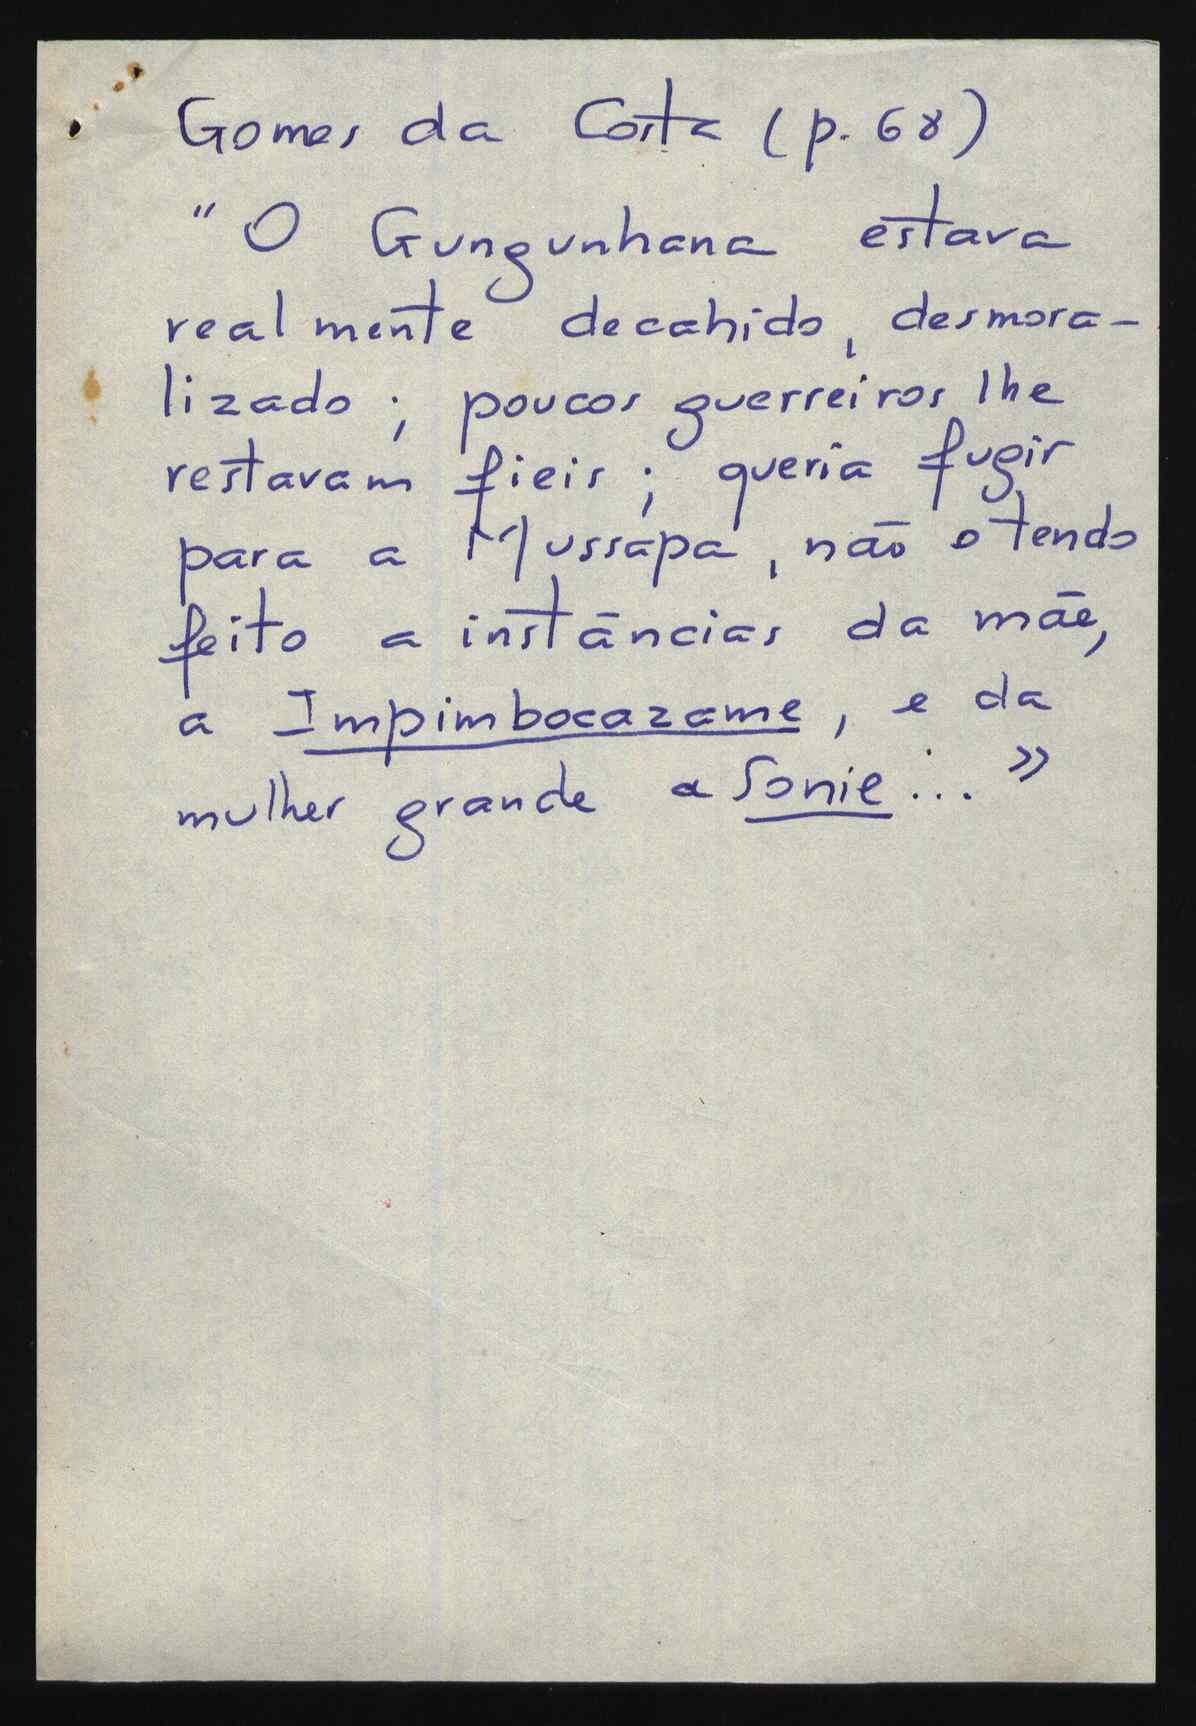 Gomes da Costa (p. 68)
" O Gungunhana estava
realmente decahido, desmora-
lizado; poucos guerreiros lhe
restavam fieis; queria fugir
para a Mussapa, não o tendo
feito a instâncias da mãe,
a Impimbocazame, e da
mulher grande a Sonie... "